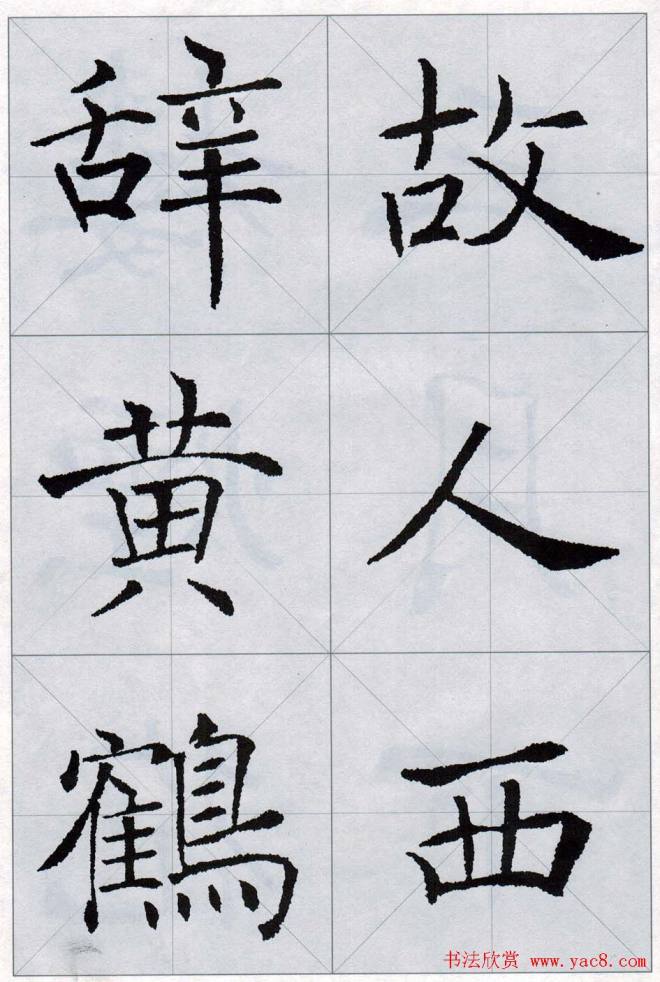 故人西
辞黄鹤
书法欣赏 www.yac8.com